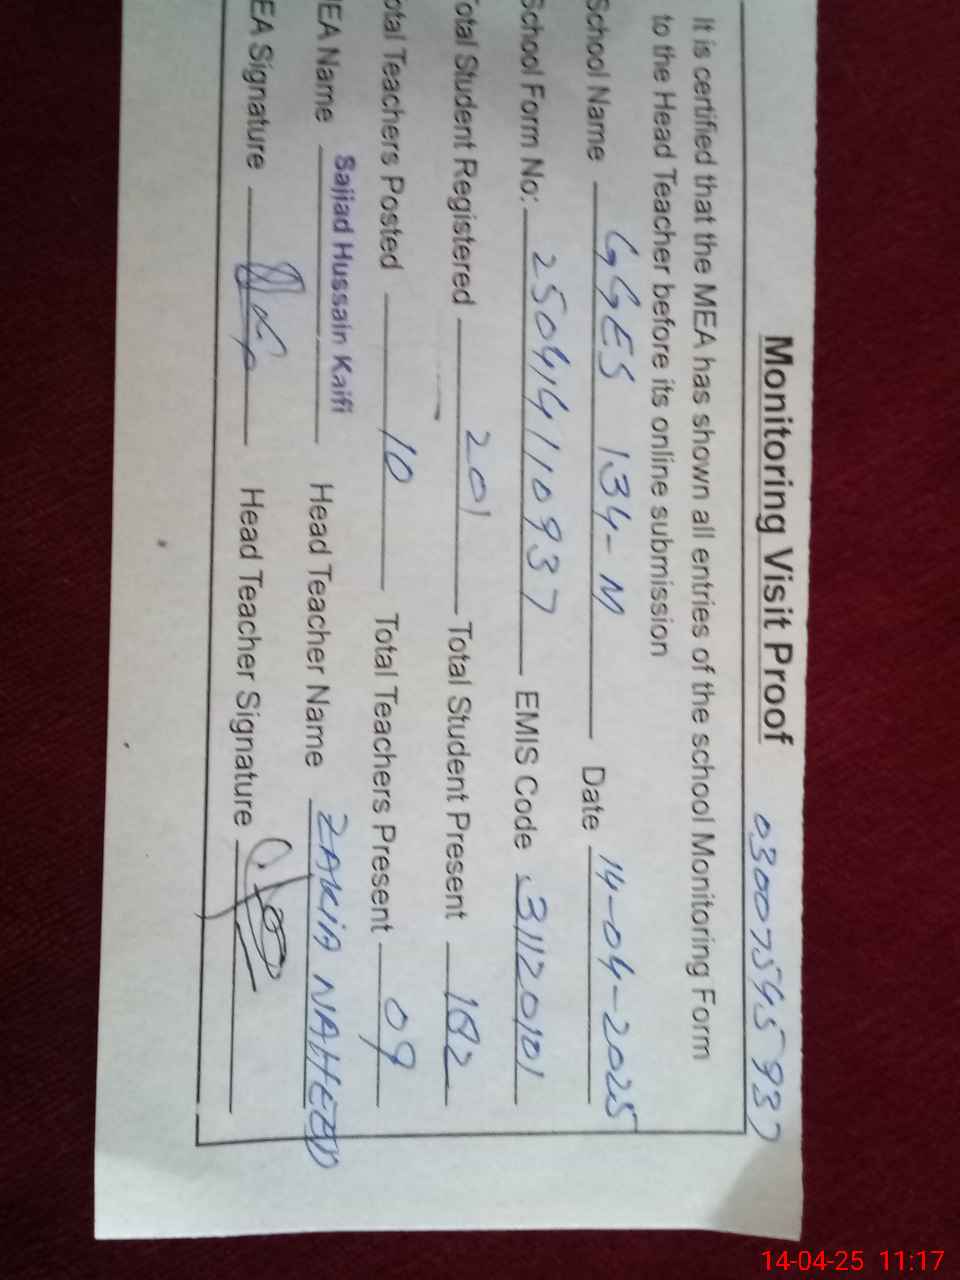 Monitoring Visit Proof 03007545937
It is certified that the MEA has shown all entries of the school Monitoring Form
to the Head Teacher before its online submission
School Name GGES 134-M Date 14-04-2025
School Form No: 250414110937 EMIS Code 31120101
Total Student Registered 201 Total Student Present 182
otal Teachers Posted 10 Total Teachers Present 09
MEA Name Sajjad Hussain Kaifi Head Teacher Name ZAKIA NAHEED
EA Signature Head Teacher Signature
14-04-25 11:17